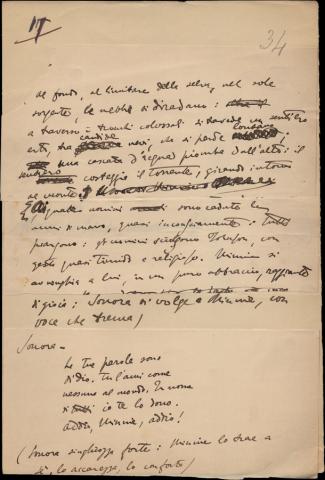 17
34
al fondo, al limitare della selva, nel sole
sorgente, le nebbie si diradano:
a traverso i tronchi colossali si travede un sentiero
erto, tra candide nevi, che si perde lontano;
una cascata d'acqua piomba dall'alto: il
sentiero costeggia il torrente, girando intorno
al monte.
A quale nomini sono cadute le
armi di mano, quasi inconsciamente: tutti
piangono: gli uomini sciolgono Johnson, con
gesto quasi timido e religioso. Minnie si
avvinghia a lui, in un puro abbraccio, raggiante
di gioia: Sonora si volge a Minnie, con
voce che trema)
Sonora -
Le tue parole sono
di Dio. Tu l'ami come
nessuno al mondo. In nome
di tutti io te lo dono.
Addio, Minnie, addio!
(Sonora singhiozza forte: Minnie lo trae a
sè, lo accarezza, lo conforta)